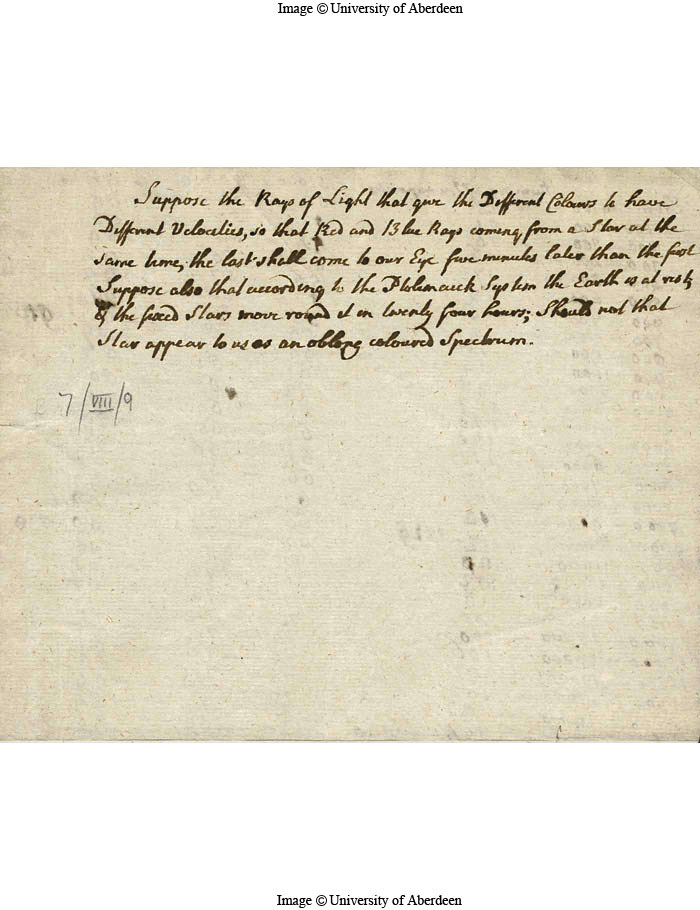 Image © University of Aberdeen
Suppose the Rays of Light that give the Different Colours to have
Different Velocities, so that Red and Blue Rays coming from a Star at the
same time, the last shall come to our Eye five minutes later than the first
Suppose also that according to the Ptolemaick System the Earth is at rest
& the fixed Stars move round it in twenty four hours; Should not that
Star appear to us as an oblong coloured Spectrum.
7/VIII/9
Image © University of Aberdeen